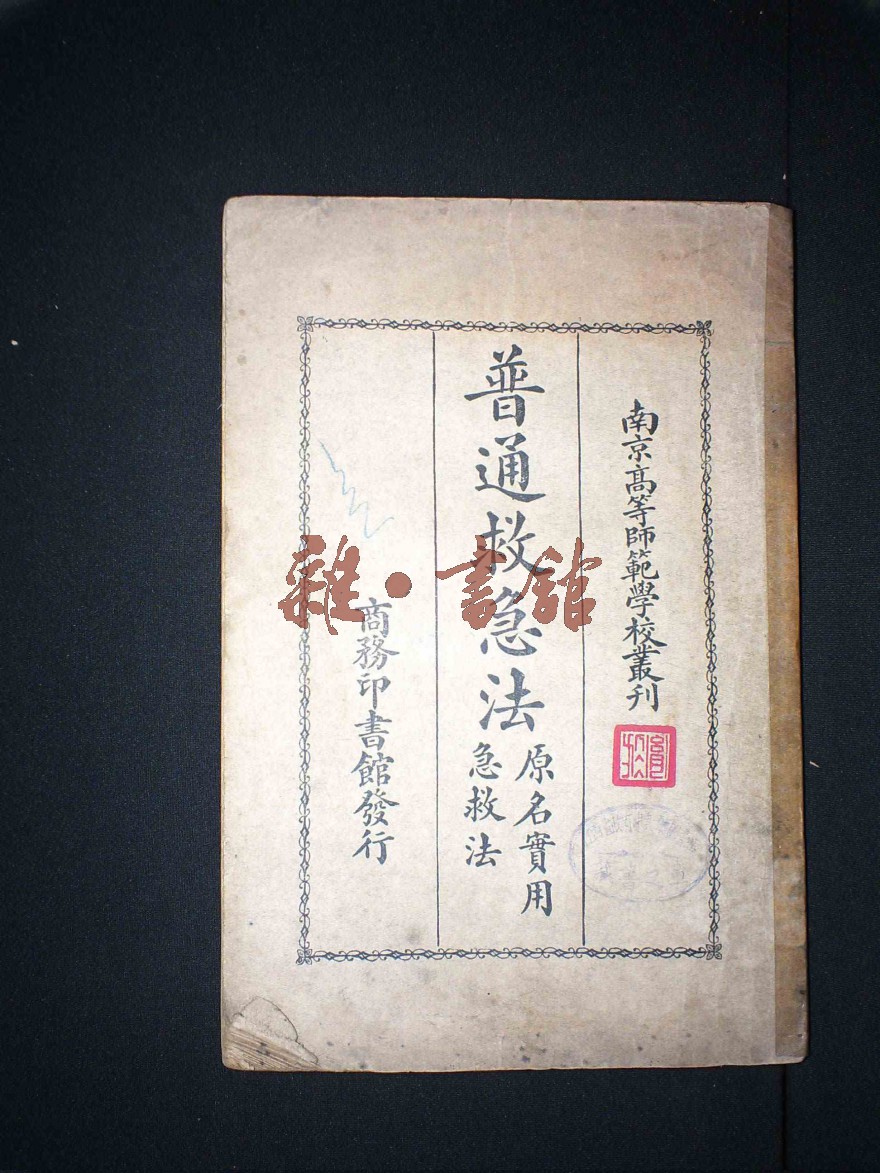 南京高等師範學校叢刊
普通救急法
原名實用
急救法
商務印書館發行
雜·書館